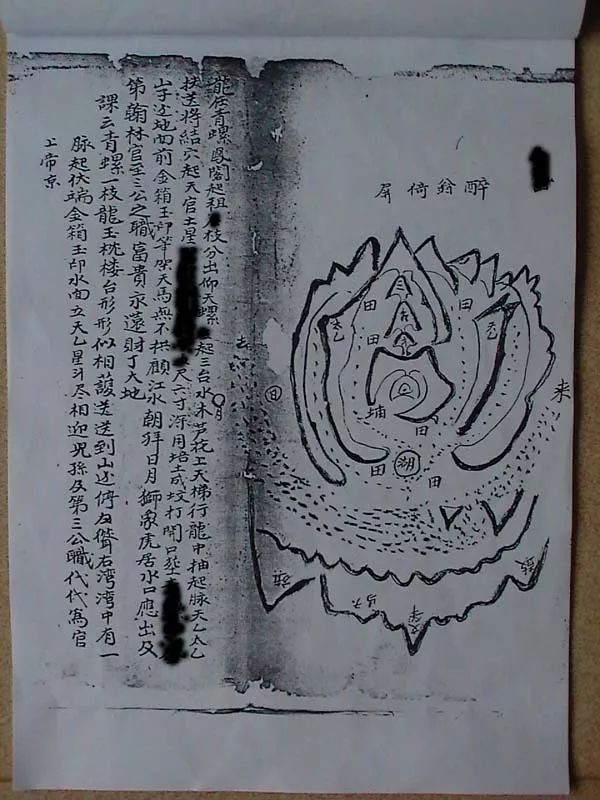 醉翁倚屏
来
田
田
天乙
太乙
田
埔
湖
田
田
去
日
月
旗
文筆
鼓
龍在青螺鳳閣起祖枝分出仰天螺起三台水木芦花上天梯行龍中抽起脉天乙太乙
扶送將結穴起天官土星尺六寸深用培土或坟打開口葬
山字地面前金箱玉印筆架天馬無不拱顧江水朝拜日月獅象虎居水口應出及
第翰林官至三公之職富貴永遠財丁大地
課云青螺一枝龍玉枕楼台形形似相護送送到山聳石湾湾中有一
脉起伏端金箱玉印水面立天乙星斗尽相迎児孫及第三公職代代為官
上帝京